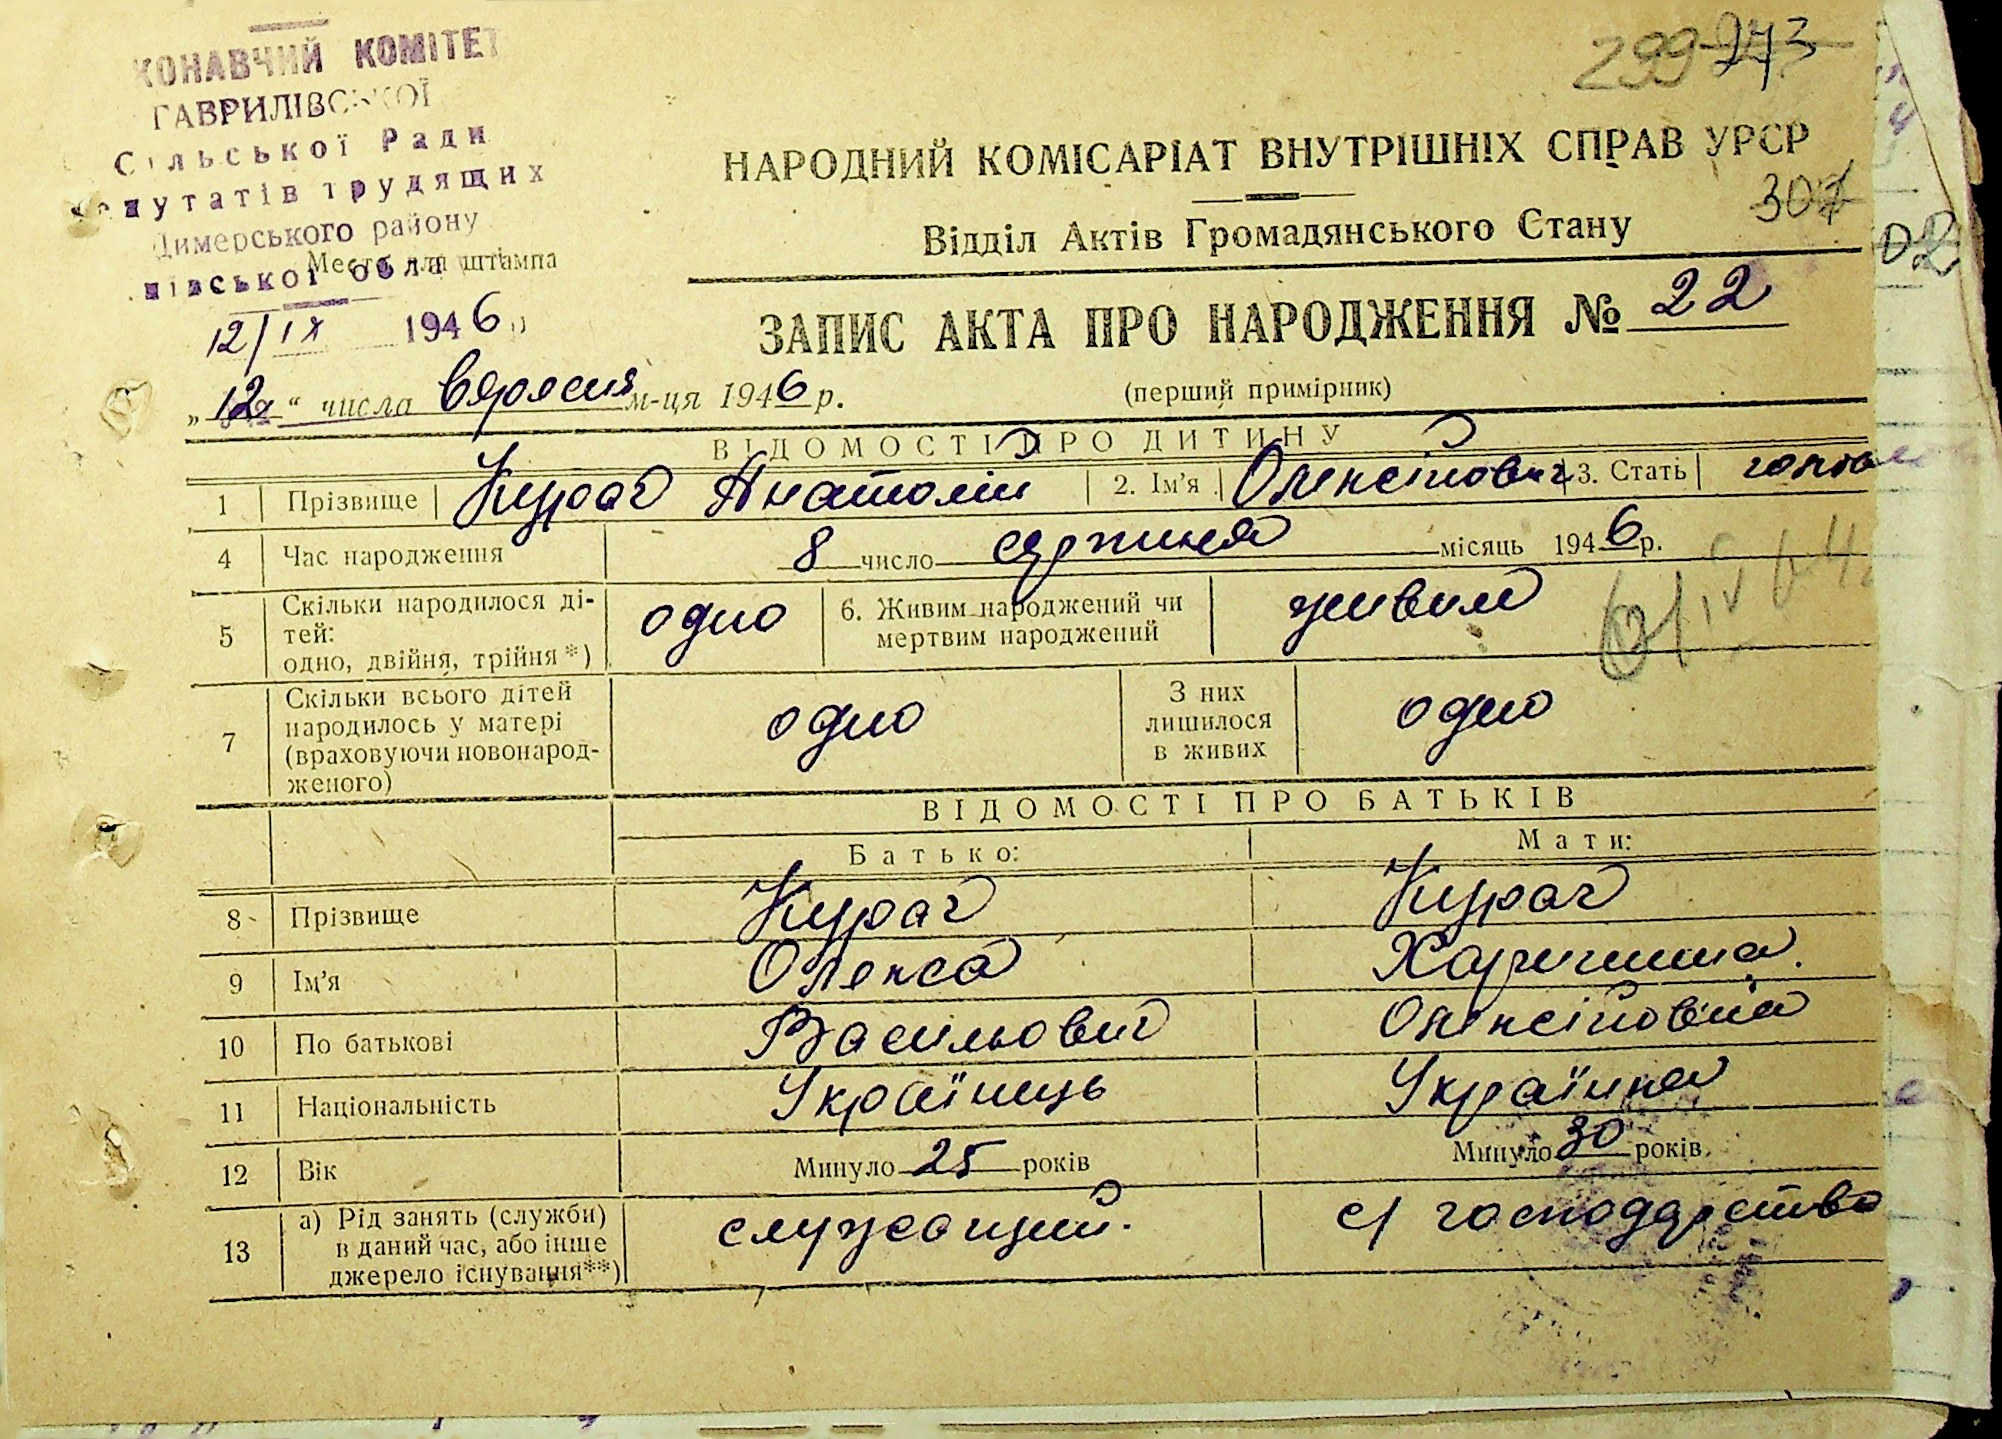 КОНАВЧИЙ КОМІТЕТ
ГАВРИЛІВСЬКОЇ
Сільської Ради
депутатів трудящих
Димерського району
Место для штампа
ївської обла
12/IX 1946
299 273
НАРОДНИЙ КОМІСАРІАТ ВНУТРІШНІХ СПРАВ УРСР
307
Відділ Актів Громадянського Стану
02
ЗАПИС АКТА ПРО НАРОДЖЕННЯ № 22
„12“ числа вересня м-ця 1946 р.
(перший примірник)
ВІДОМОСТІ ПРО ДИТИНУ
1 Прізвище Курач Анатолій 2. Ім'я Олексійович 3. Стать
4 Час народження 8 число серпня місяць 1946 р.
5 Скільки народилося ді-
тей:
одно, двійня, трійня*) одно 6. Живим народжений чи
мертвим народжений живим
7 Скільки всього дітей
народилось у матері
(враховуючи новонарод-
женого) одно З них
лишилося
в живих одно
ВІДОМОСТІ ПРО БАТЬКІВ
Батько: Мати:
8 Прізвище Курач Курач
9 Ім'я Олекса Харитина.
10 По батькові Васильович Олексіївна
11 Національність Українець Українка
12 Вік Минуло 25 років Минуло 30 років
13 а) Рід занять (служби)
в даний час, або інше
джерело існування**) служащий. с/господарство